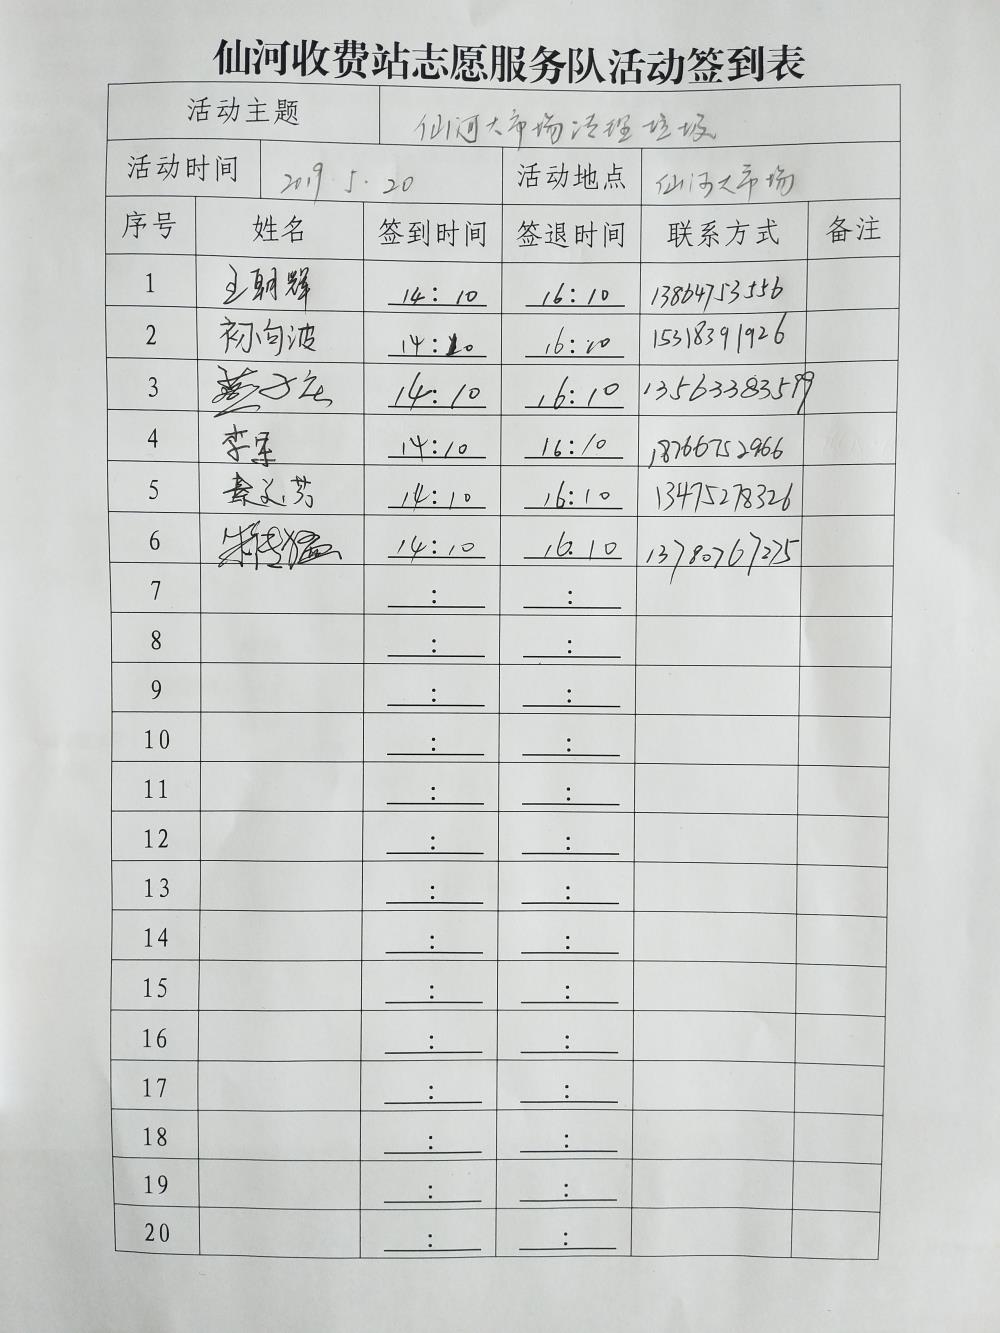 仙河收费站志愿服务队活动签到表
活动主题 仙河大市场清理垃圾
活动时间 2019.5.20 活动地点 仙河大市场
序号 姓名 签到时间 签退时间 联系方式 备注
1 王朝辉 14:10 16:10 13864753556
2 初向波 14:10 16:10 15318391926
3 14:10 16:10 13563383599
4 李军 14:10 16:10 18766752966
5 秦文芳 14:10 16:10 13475278326
6 14:10 16:10 13780767275
7 : :
8 : :
9 : :
10 : :
11 : :
12 : :
13 : :
14 : :
15 : :
16 : :
17 : :
18 : :
19 : :
20 : :